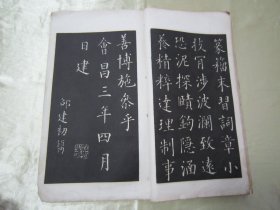 篆籀末習詞章小
技涉波瀾致遠
恐泥探賾鈎隱涵
養精粹達理制事
善博施參乎
會昌三年四月
日建
邵建初刻